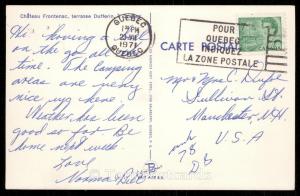 Château Frontenac, terrasse Dufferin
QUEBEC
PM
1971
QUEBEC
POUR
QUEBEC
INDIQUEZ
LA ZONE POSTALE
CARTE POSTALE
Hi having a
on the go all the
time. The camping
areas are very
nice up here.
Weather has been
good so far. Be
home next week.
Love
Norma
Mr & Mrs C.
Sullivan St.
Manchester, N.H.
U.S.A